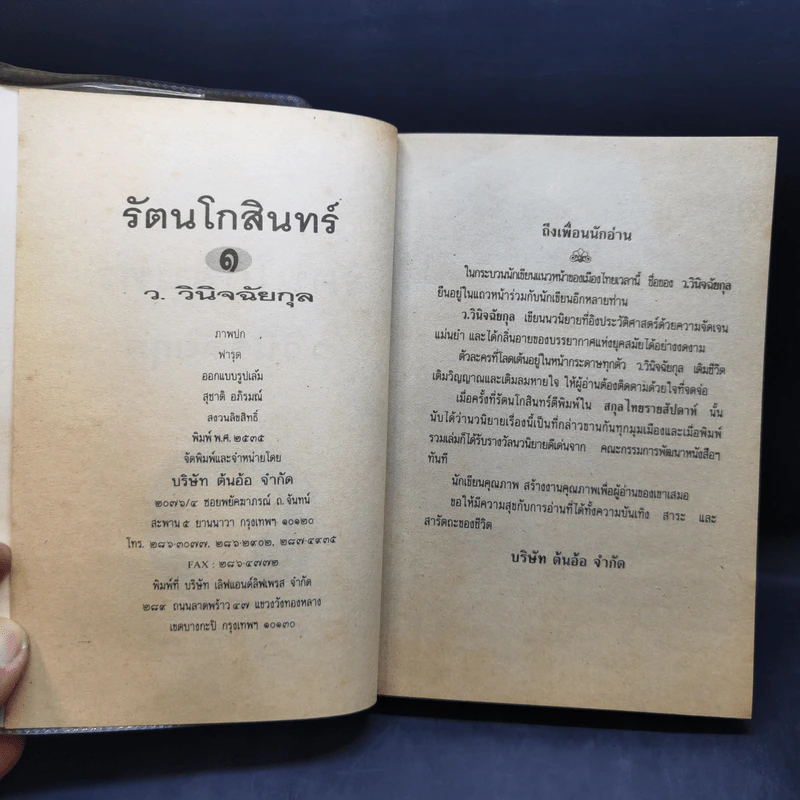 รัตนโกสินทร์
๑
ว. วินิจฉัยกุล
ภาพปก
ฟารุต
ออกแบบรูปเล่ม
สุชาติ อภิรมณ์
สงวนลิขสิทธิ์
พิมพ์ พ.ศ. ๒๕๓๕
จัดพิมพ์และจำหน่ายโดย
บริษัท ต้นอ้อ จำกัด
๒๐๗๖/๔ ซอยพยัคฆาภรณ์ ถ.จันทน์
สะพาน ๕ ยานนาวา กรุงเทพฯ ๑๐๑๒๐
โทร. ๒๘๖-๓๐๗๗, ๒๘๖-๒๙๐๒, ๒๘๗-๔๙๓๕
FAX : ๒๘๖-๔๗๗๒
พิมพ์ที่ บริษัท เลิฟแอนด์ลิฟเพรส จำกัด
๒๘๙ ถนนลาดพร้าว ๔๗ แขวงวังทองหลาง
เขตบางกะปิ กรุงเทพฯ ๑๐๑๓๐
ถึงเพื่อนนักอ่าน
ในกระบวนนักเขียนแนวหน้าของเมืองไทยเวลานี้ ชื่อของ ว.วินิจฉัยกุล
ยืนอยู่ในแถวหน้าร่วมกับนักเขียนอีกหลายท่าน
ว.วินิจฉัยกุล เขียนนวนิยายที่อิงประวัติศาสตร์ด้วยความจัดเจน
แม่นยำ และได้กลิ่นอายของบรรยากาศแห่งยุคสมัยได้อย่างงดงาม
ตัวละครที่โลดเต้นอยู่ในหน้ากระดาษทุกตัว ว.วินิจฉัยกุล เติมชีวิต
เติมวิญญาณและเติมลมหายใจ ให้ผู้อ่านต้องติดตามด้วยใจที่จดจ่อ
เมื่อครั้งที่รัตนโกสินทร์ตีพิมพ์ใน สกุลไทยรายสัปดาห์ นั้น
นับได้ว่านวนิยายเรื่องนี้เป็นที่กล่าวขานกันทุกมุมเมืองและเมื่อพิมพ์
รวมเล่มก็ได้รับรางวัลนวนิยายดีเด่นจาก คณะกรรมการพัฒนาหนังสือฯ
ทันที
นักเขียนคุณภาพ สร้างงานคุณภาพเพื่อผู้อ่านของเขาเสมอ
ขอให้มีความสุขกับการอ่านที่ได้ทั้งความบันเทิง สาระ และ
สารัตถะของชีวิต
บริษัท ต้นอ้อ จำกัด